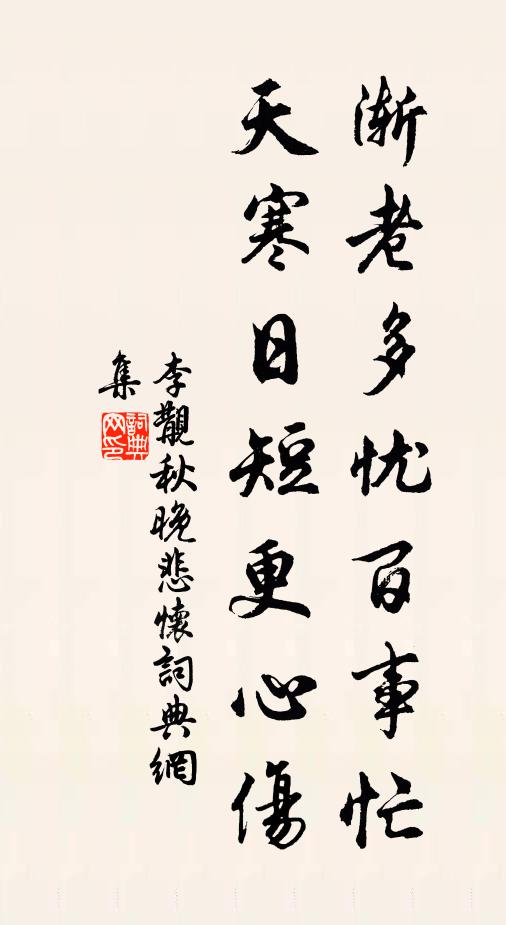 渐老多忧百事忙
天寒日短更心傷
李觀秋晚悲懷詞典網
集
詞典
网印